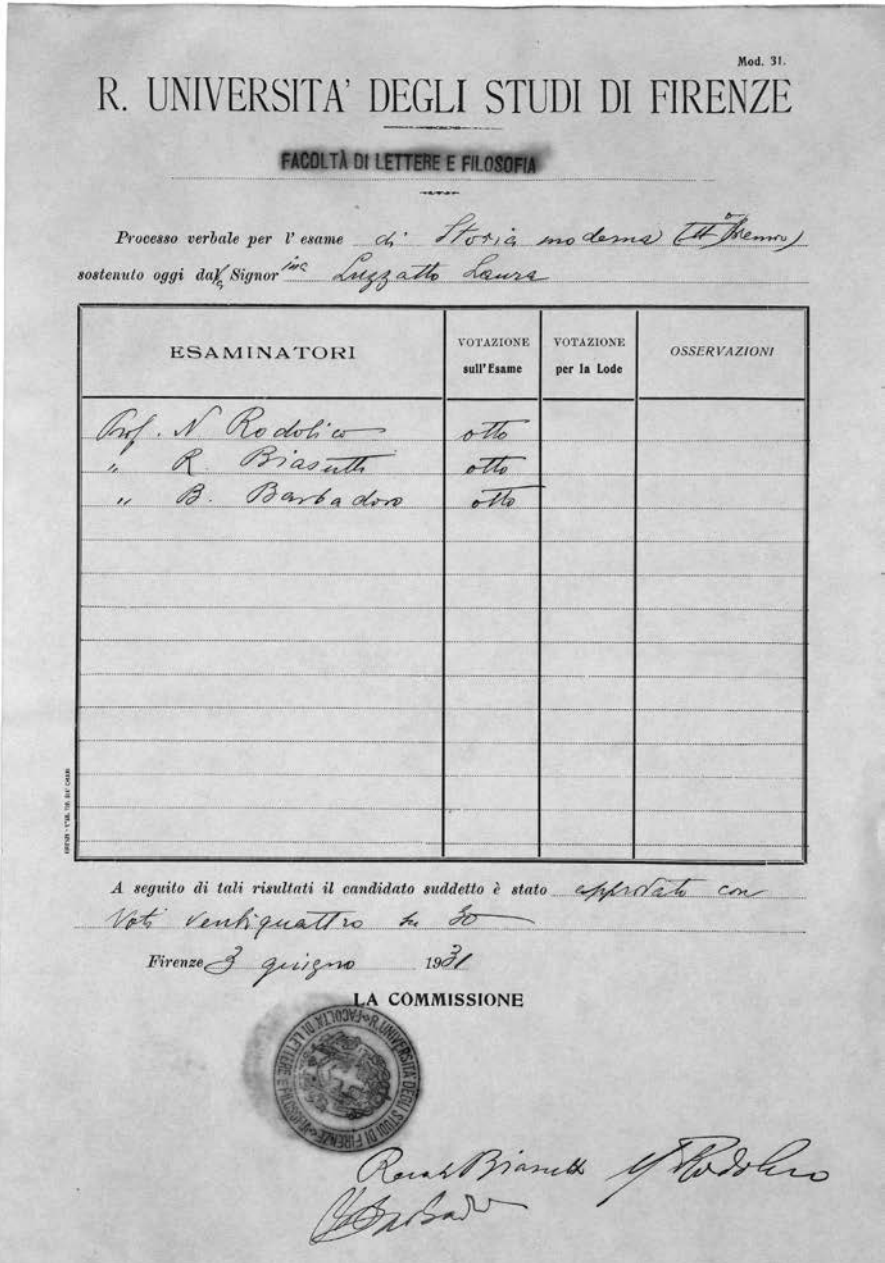 Mod. 31.
R. UNIVERSITA' DEGLI STUDI DI FIRENZE
FACOLTÀ DI LETTERE E FILOSOFIA
Processo verbale per l'esame di Storia moderna
sostenuto oggi dalla Signorina Luzzatto Laura
ESAMINATORI
VOTAZIONE sull'Esame
VOTAZIONE per la Lode
OSSERVAZIONI
Prof. N. Rodolico otto
" R. Biasutti otto
" B. Barbadoro otto
A seguito di tali risultati il candidato suddetto è stato approvato con
Voti ventiquattro su 30
Firenze 3 giugno 1931
LA COMMISSIONE
R. UNIVERSITÀ DEGLI STUDI DI FIRENZE FACOLTÀ DI LETTERE E FILOSOFIA
Biasutti N Rodolico
Barbadoro